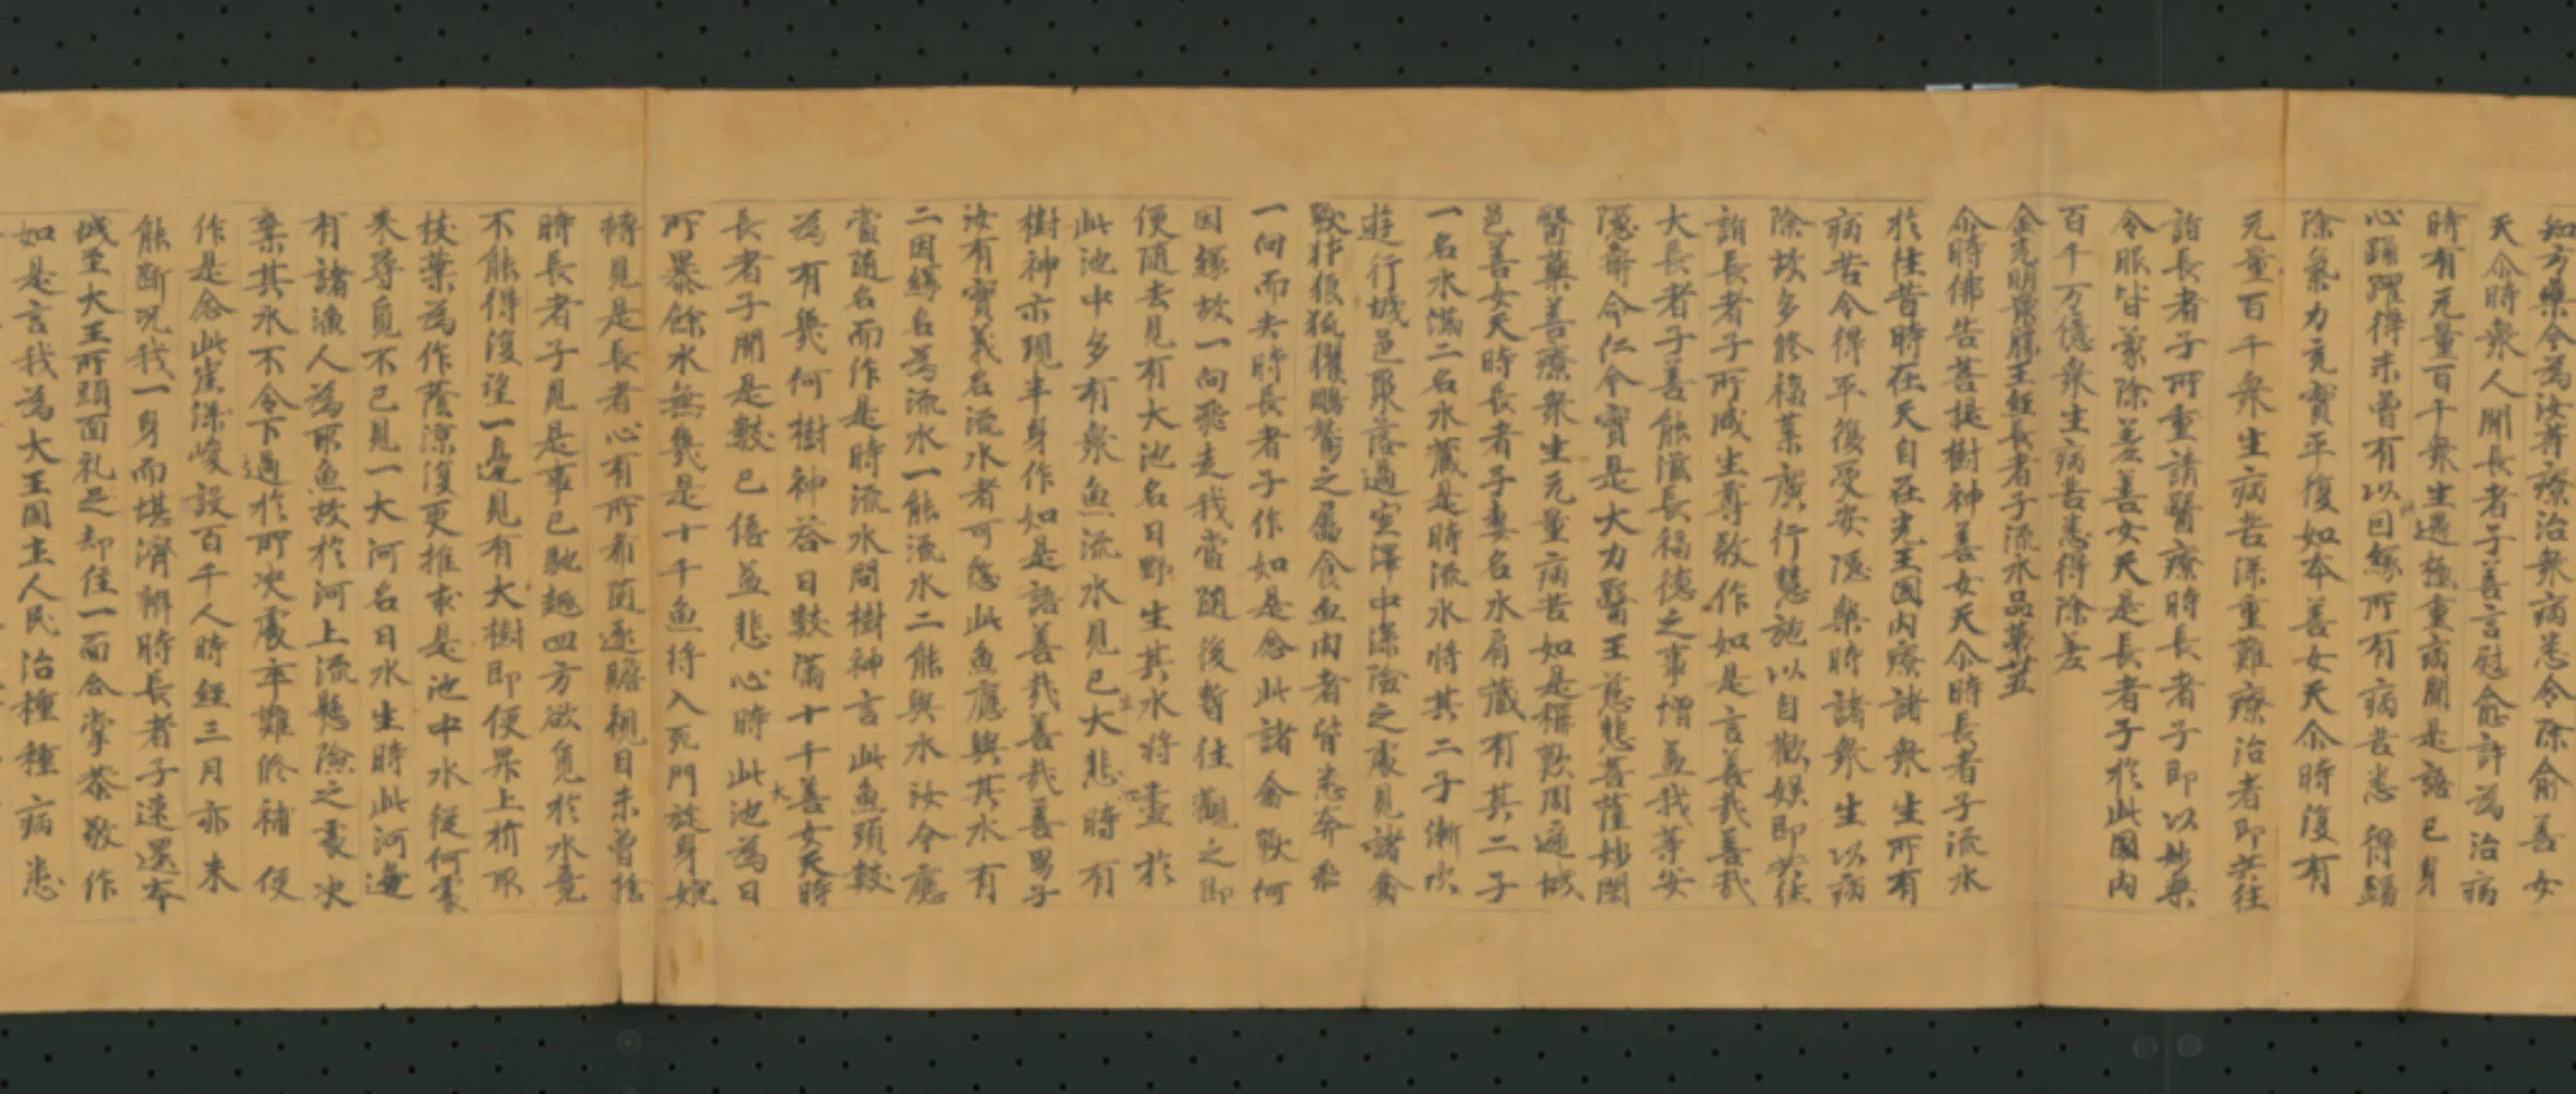 知方藥令為汝等療治衆病悉令除愈善女
天尒時衆人聞長者子善言慰喻許為治病
時有无量百千衆生遇極重病聞是語已身
心踊躍得未曾有以此因緣所有病苦悉得蠲
除氣力充實平復如本善女天尒時復有
无量百千衆生病苦深重難療治者即共往
詣長者子所重請醫療時長者子即以妙藥
令服皆蒙除差善女天是長者子於此國内
百千万億衆生病苦悉得除差
金光明最勝王經長者子流水品第廿五
尒時佛告菩提樹神善女天尒時長者子流水
於往昔時在天自在光王國内療諸衆生所有
病苦令得平復受安隱樂時諸衆生以病
除故多修福業廣行慧施以自歡娛即共往
詣長者子所咸生尊敬作如是言善哉善哉
大長者子善能滋長福德之事增益我等安
隱壽命仁今實是大力醫王慈悲菩薩妙閑
醫藥善療衆生无量病苦如是稱歎周遍城
邑善女天時長者子妻名水肩藏有其二子
一名水滿二名水藏是時流水將其二子漸次
遊行城邑聚落過空澤中深險之處見諸禽
獸犲狼狐玃鵰鷲之屬食血肉者皆悉奔飛
一向而去時長者子作如是念此諸禽獸何
因緣故一向飛走我當隨後暫往觀之即
便隨去見有大池名曰野生其水將盡於
此池中多有衆魚流水見已生大悲心時有
樹神示現半身作如是語善哉善哉善男子
汝有實義名流水者可愍此魚應與其水有
二因緣名為流水一能流水二能與水汝今應
當隨名而作是時流水問樹神言此魚頭數
為有幾何樹神荅曰數滿十千善女天時
長者子聞是數已倍益悲心時此大池為日
所暴餘水無幾是十千魚將入死門旋身婉
轉見是長者心有所希隨逐瞻視目未曾捨
時長者子見是事已馳趣四方欲覓於水竟
不能得復望一邊見有大樹即便昇上折取
枝葉為作蔭涼復更推求是池中水從何處
來尋覓不已見一大河名曰水生時此河邊
有諸漁人為取魚故於河上流懸險之處决
棄其水不令下過於所决處卒難修補便
作是念此崖深峻設百千人時經三月亦未
能斷況我一身而堪濟辦時長者子速還本
城至大王所頭面礼足却住一面合掌恭敬作
如是言我為大王國土人民治種種病悉